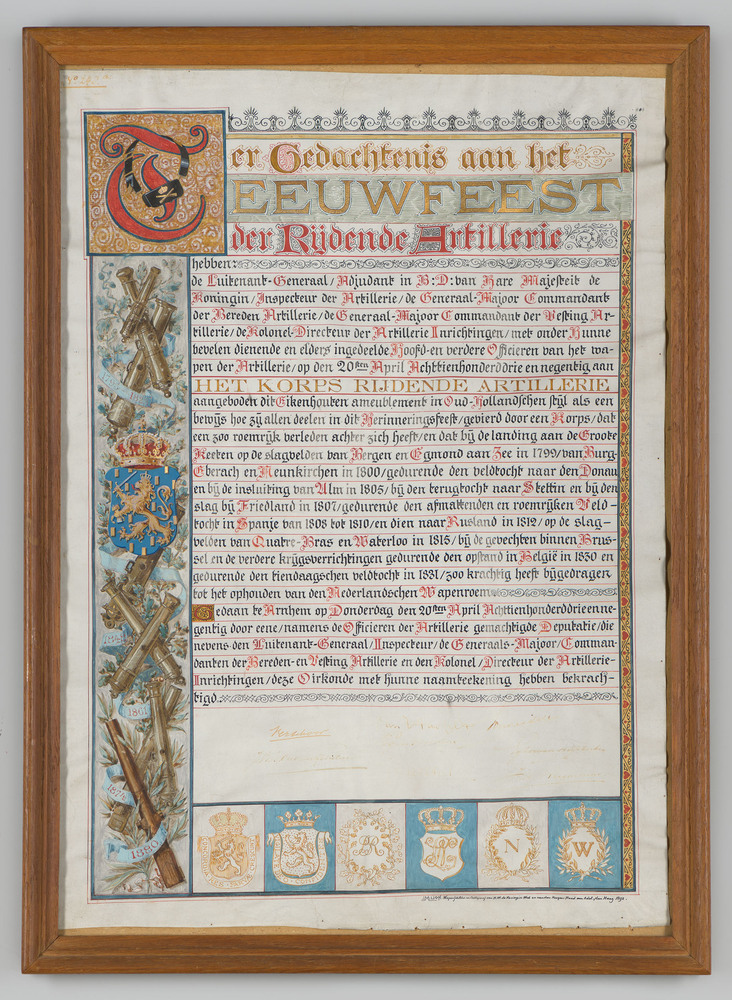 Ter Gedachtenis aan het
EEUWFEEST
der Rijdende Artillerie
hebben:
de Luitenant-Generaal/Adjudant in B:D:van Hare Majesteit de
Koningin/Inspecteur der Artillerie/de Generaal-Majoor Commandant
der Bereden Artillerie/de Generaal-Majoor Commandant der Vesting Ar-
tillerie/de Kolonel-Directeur der Artillerie Inrichtingen/met onder Hunne
bevelen dienende en elders ingedeelde Hoofd-en verdere Officieren van het wa-
pen der Artillerie/op den 20sten April Achttienhonderd drie en negentig aan
HET KORPS RIJDENDE ARTILLERIE
aangeboden dit Eikenhouten ameublement in Oud-Hollandschen stijl als een
bewijs hoe zij allen deelen in dit Herinneringsfeest/gevierd door een Korps/dat
een zoo roemrijk verleden achter zich heeft/en dat bij de landing aan de Groote
Keeten op de slagvelden van Bergen en Egmond aan Zee in 1799/van Burg-
Eberach en Neunkirchen in 1800/gedurende den veldtocht naar den Donau
en bij de insluiting van Ulm in 1805/bij den terugtocht naar Stettin en bij den
slag bij Friedland in 1807/gedurende den afmattenden en roemrijken Veld-
tocht in Spanje van 1808 tot 1810/en dien naar Rusland in 1812/op de slag-
velden van Quatre-Bras en Waterloo in 1815/bij de gevechten binnen Brus-
sel en de verdere krijgsverrichtingen gedurende den opstand in België in 1830 en
gedurende den tiendaagschen veldtocht in 1831/zoo krachtig heeft bijgedragen
tot het ophouden van den Nederlandschen Wapenroem
Gedaan te Arnhem op Donderdag den 20sten April Achttienhonderddrieenne-
gentig door eene/namens de Officieren der Artillerie gemachtigde Deputatie/die
nevens den Luitenant-Generaal/Inspecteur/de Generaals-Majoor/Comman-
danten der Bereden-en Vesting Artillerie en den Kolonel/Directeur der Artillerie-
Inrichtingen/deze Oirkonde met hunne naamteekening hebben bekrach-
tigd.
1861
1880
N
W